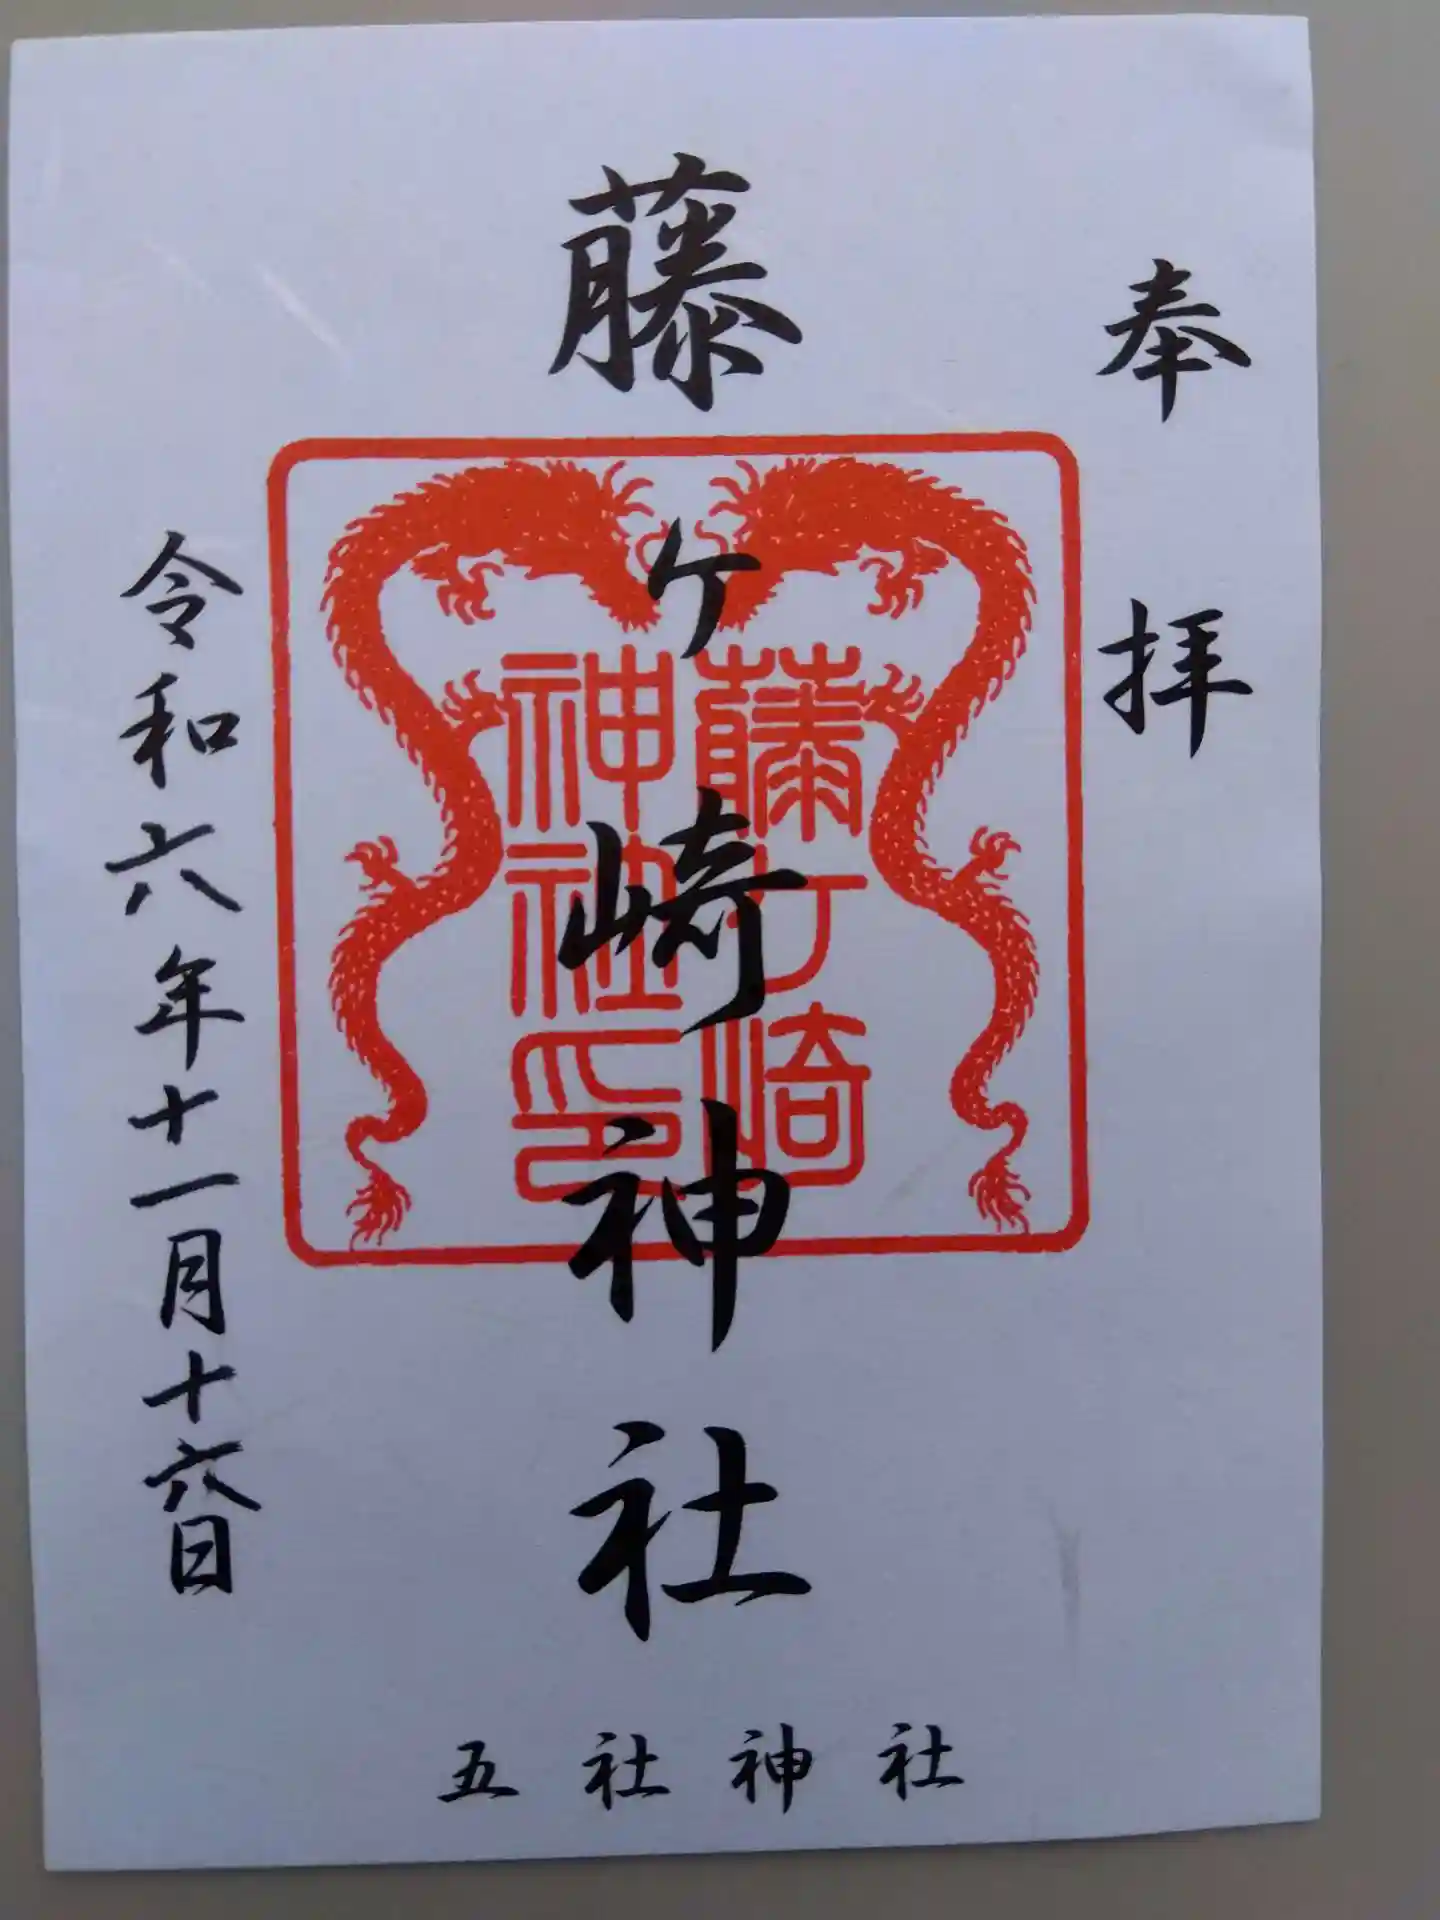 奉拝
藤ヶ崎神社
藤ヶ崎
神社印
令和六年十一月十六日
五社神社